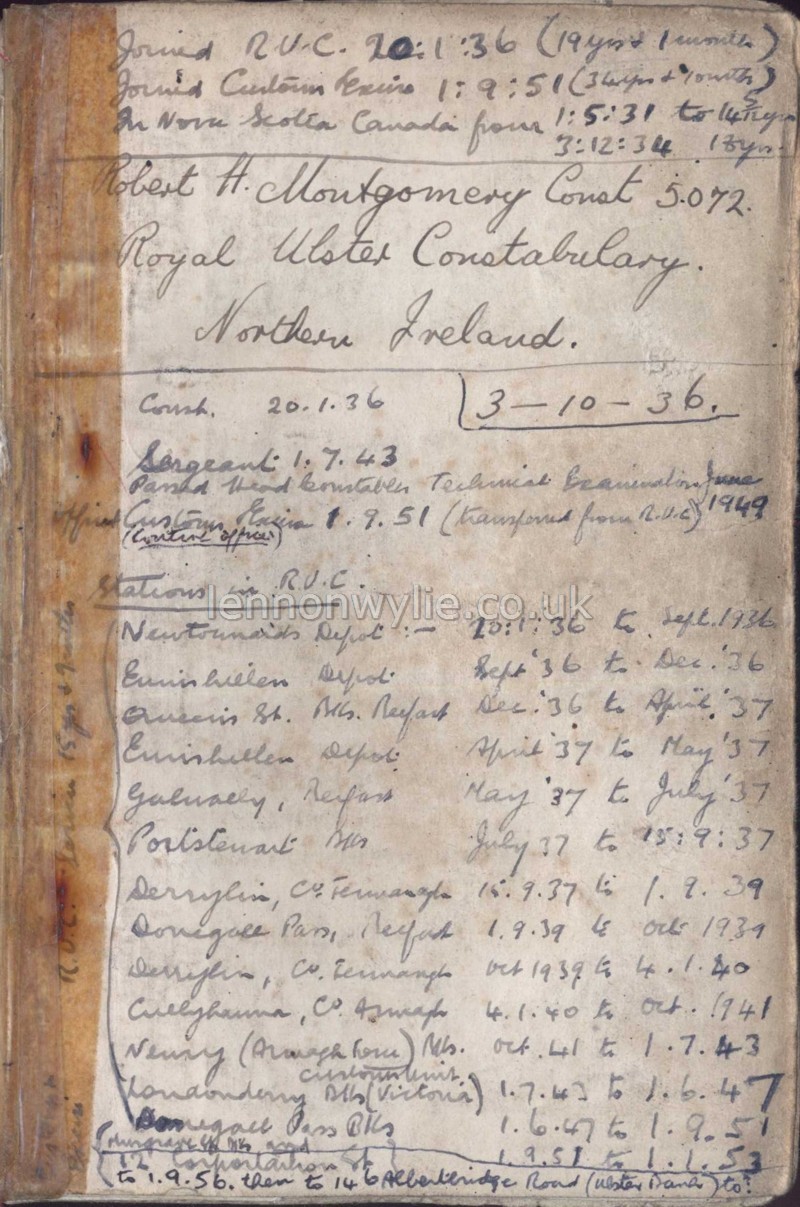 Joined R.U.C. 20:1:36 (19 yrs & 1 month)
Joined Customs Excise 1:9:51 (34 yrs & month)
In Nova Scotia Canada from 1:5:31 to 14 5/12 yrs
3:12:34 18 yrs.
Robert H. Montgomery Const 5.072.
Royal Ulster Constabulary.
Northern Ireland.
Const. 20.1.36 3-10-36.
Sergeant 1.7.43
Passed Head Constables Technical Examination June 1949
Officer Customs Excise 1.9.51 (transferred from R.U.C)
(Control officer)
Stations in R.U.C.
lennonwylie.co.uk
Newtownards Depot :- 20:1:36 to Sept. 1936
Enniskillen Depot Sept '36 to Dec. '36
Queens St. Bks. Belfast Dec. '36 to April '37
Enniskillen Depot April '37 to May '37
Galwally, Belfast May '37 to July '37
Portstewart Bks July 37 to 15:9:37
Derrylin, Co. Fermanagh 15.9.37 to 1.9.39
Donegall Pass, Belfast 1.9.39 to Oct 1939
Derrylin, Co. Fermanagh Oct 1939 to 4.1.40
Cullyhanna, Co. Armagh 4.1.40 to Oct. 1941
Newry (Armagh Force) Bks. Oct. 41 to 1.7.43
customs unit.
Londonderry Bks (Victoria) 1.7.43 to 1.6.47
Donegall Pass Bks 1.6.47 to 1.9.51
Musgrave St Bks and
12 Corporation St 1.9.51 to 1.1.53
to 1.9.56. then to 146 Albertbridge Road (Ulster Bank) to:
R.U.C. Service 15 yrs & 7 mths